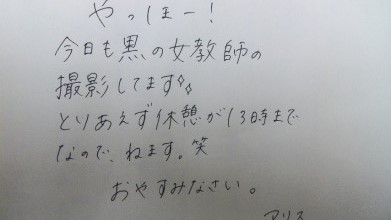 やっほー!
今日も黒の女教師の
撮影してます♪
とりあえず休憩が13時まで
なので、ねます。笑
おやすみなさい。
アリス